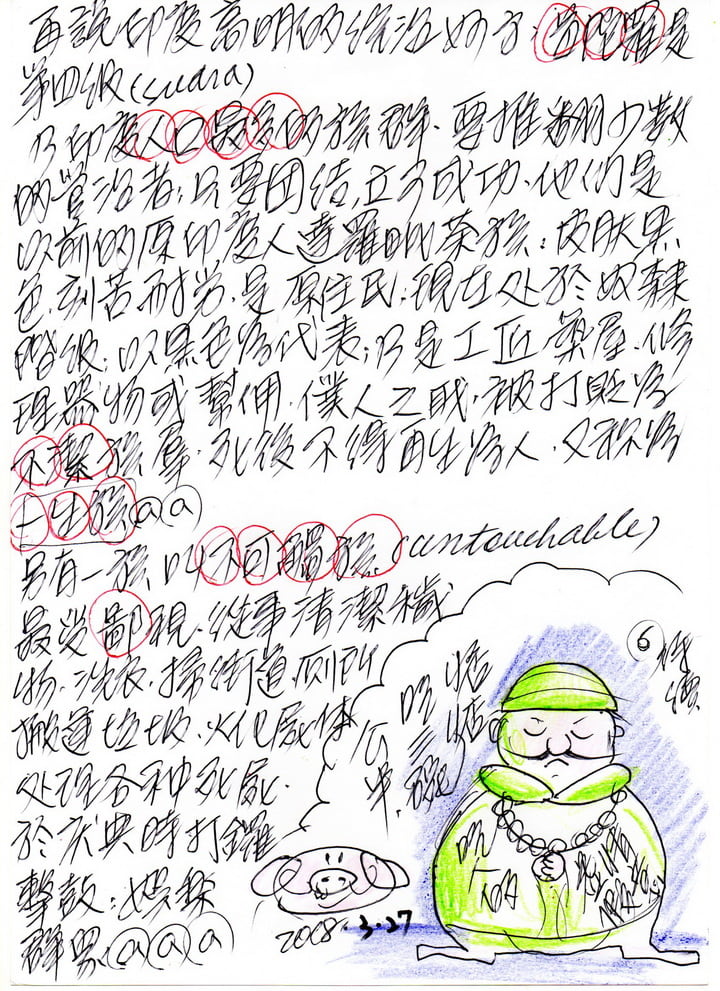 再說印度高明的統治妙方:首陀羅是
第四級(sudra)
乃印度人口最多的族群.要推翻少數
的管治者;只要團結,立可成功.他們是
以前的原印度人達羅毗茶族:皮膚黑
色.刻苦耐勞.是原住民;現在处於奴隸
階級;以黑色為代表;乃是工匠築屋.修
理器物或幫佣.僕人之职.被打貶為
不潔族羣.死後不得再生為人.又稱為
一生族@@
另有一族叫不可觸族.(untouchable)
最受鄙視.從事清潔穢
物.洗衣.掃街道厕所
搬運垃圾.火化屍体
处理各种死屍.
於庆典時打鑼
擊鼓;娛樂
群眾.@@@
2008.3.27
6